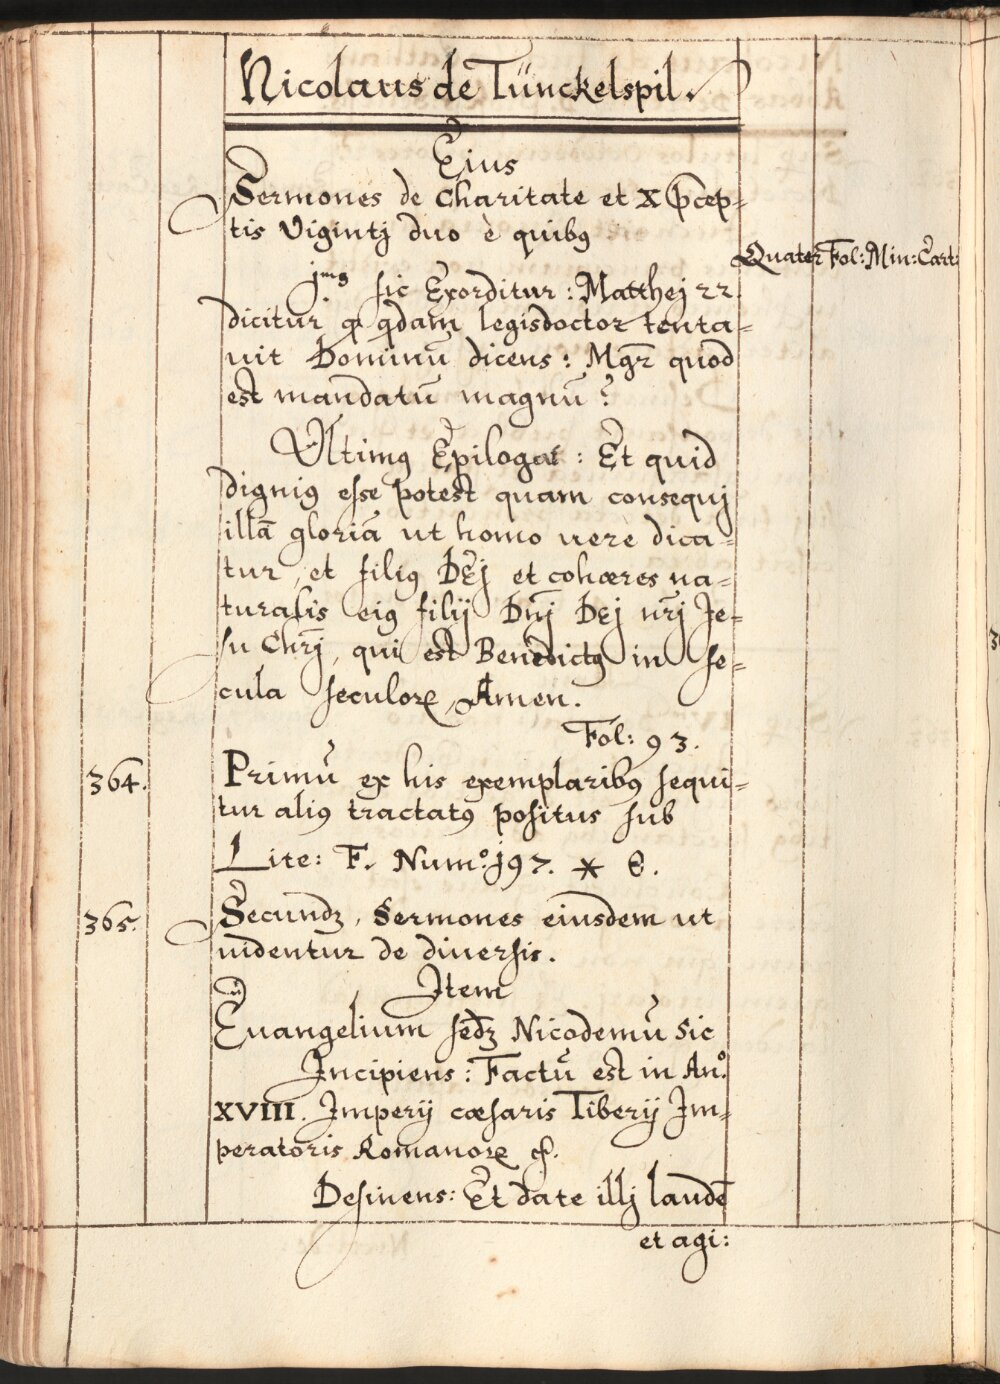 Nicolaus de Tünckelspil.
Eius
Sermones de Charitate et X Præcep=
tis Vigintj duo è quibꝯ
Quater Fol: Min: Cart:
jmꝯ sic Exorditur: Matthej 22.
dicitur qꝫ qdam legisdoctor tenta=
uit Dominū dicens: Mgr̄ quod
est mandatū magnū?
Ultimꝯ Epilogat: Et quid
digniꝯ esse potest quam consequj
illā gloriā ut homo uere dica=
tur, et filiꝯ DEj et cohæres na=
turalis eiꝯ filij Dn̄j Dej nr̄j Je=
su Chr̄j, qui est Benedictꝯ in se=
cula seculoꝝ, Amen.
Fol: 93.
364. Primū ex his exemplaribꝯ sequi=
tur aliꝯ tractatꝯ positus sub
Lite: F. Num.o 197. * 8.
365. Secundꝫ, Sermones eiusdem ut
uidentur de diuersis.
Item
Euangelium sedꝫ Nicodemū sic
Incipiens: Factū est in An.o
XVIII. Imperij cæsaris Tiberij Im=
peratoris Romanoꝝ &.
Desinens: Et date illj laudē
et agi: